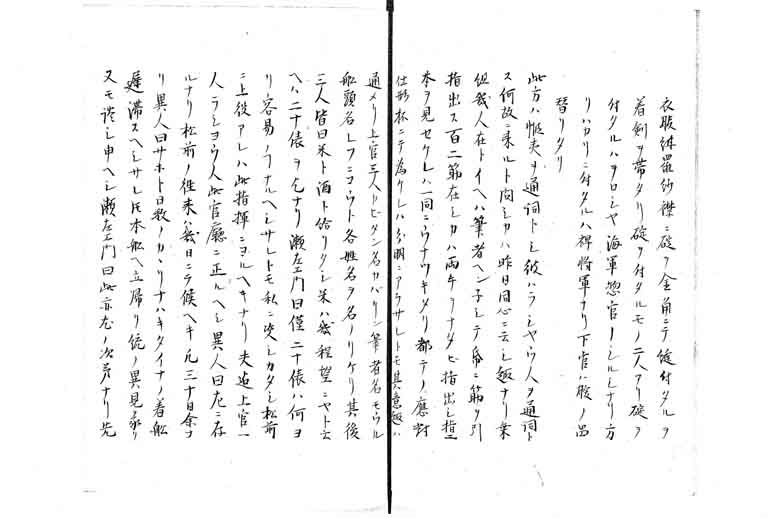 衣服緋羅紗襟ニ碇ヲ金角ニテ縫付タルヲ
着剣ヲ帯タリ碇ヲ付タルモノ二人アリ碇ヲ
付タルハヲロシヤ海軍惣官ノシルシナリ方
リハカリニ付タルハ裨将軍ナリ下官ハ服ノ品
替リタリ
此方ハ蝦夷ヲ通詞トシ彼ハラシヤウ人ヲ通詞ト
ス何故ニ来ルト問シカハ昨日同心ニ云シ趣ナリ乗
組幾人在トイヘハ筆者ヘン子シテ帋ニ筋ヲ引
指出ス百二筋在シカハ両手ヲナタヒ指出シ指
本ヲ見セケレハ一同ニウナツキタリ都テノ應対
仕形杯ニテ為ケレハ分明ニアラサレトモ其意趣ハ
通メリ上官三人トビタン名カバリン筆者名モウル
船頭名レフニコラウト各姓名ヲ名ノリケリ其後
三人皆曰米ト酒ト給リタシ米ハ幾程望ニヤト云
ヘハ二十俵ヲ乞ナリ瀬左エ門曰僅二十俵ハ何ヨ
リ容易ノ事ナルヘシサレトモ私ニ決シカタシ松前
ニ上役アレハ此指揮ニヨルヘキナリ夫迠上官一
人ラシヨウ人此官廳ニ止ルヘシ異人曰左ニ存
ルナリ松前ノ往来ハ幾日ニテ候ヘキ凡三十日余
リ異人曰サホト日数ノカヽリナハキタイナノ着船
遅滞スヘシサレ圧本船ヘ立帰リ統ノ異見承リ
又モ罷シ申ヘシ瀬左エ門曰此亦左ノ次第ナリ先